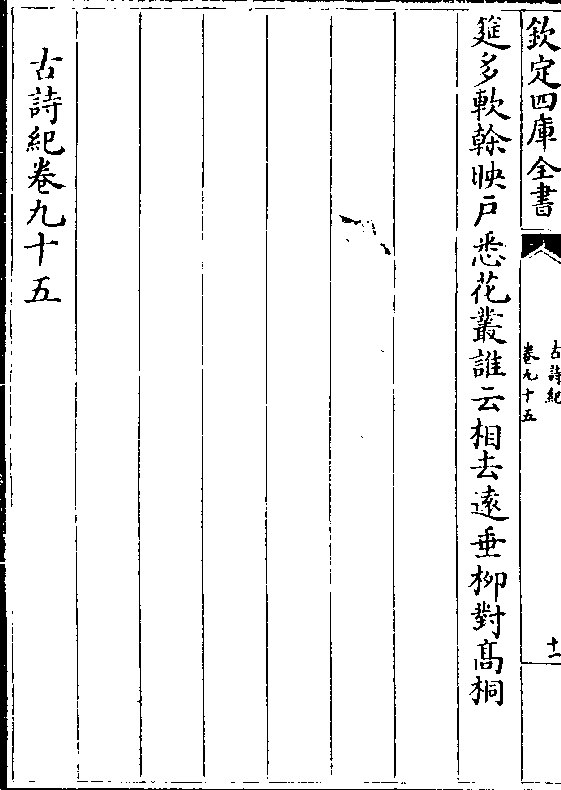 欽定四庫全書
古詩紀
卷九十五
十一
筵多軟榦映戶悉花叢誰云相去遠垂柳對髙桐
古詩紀卷九十五